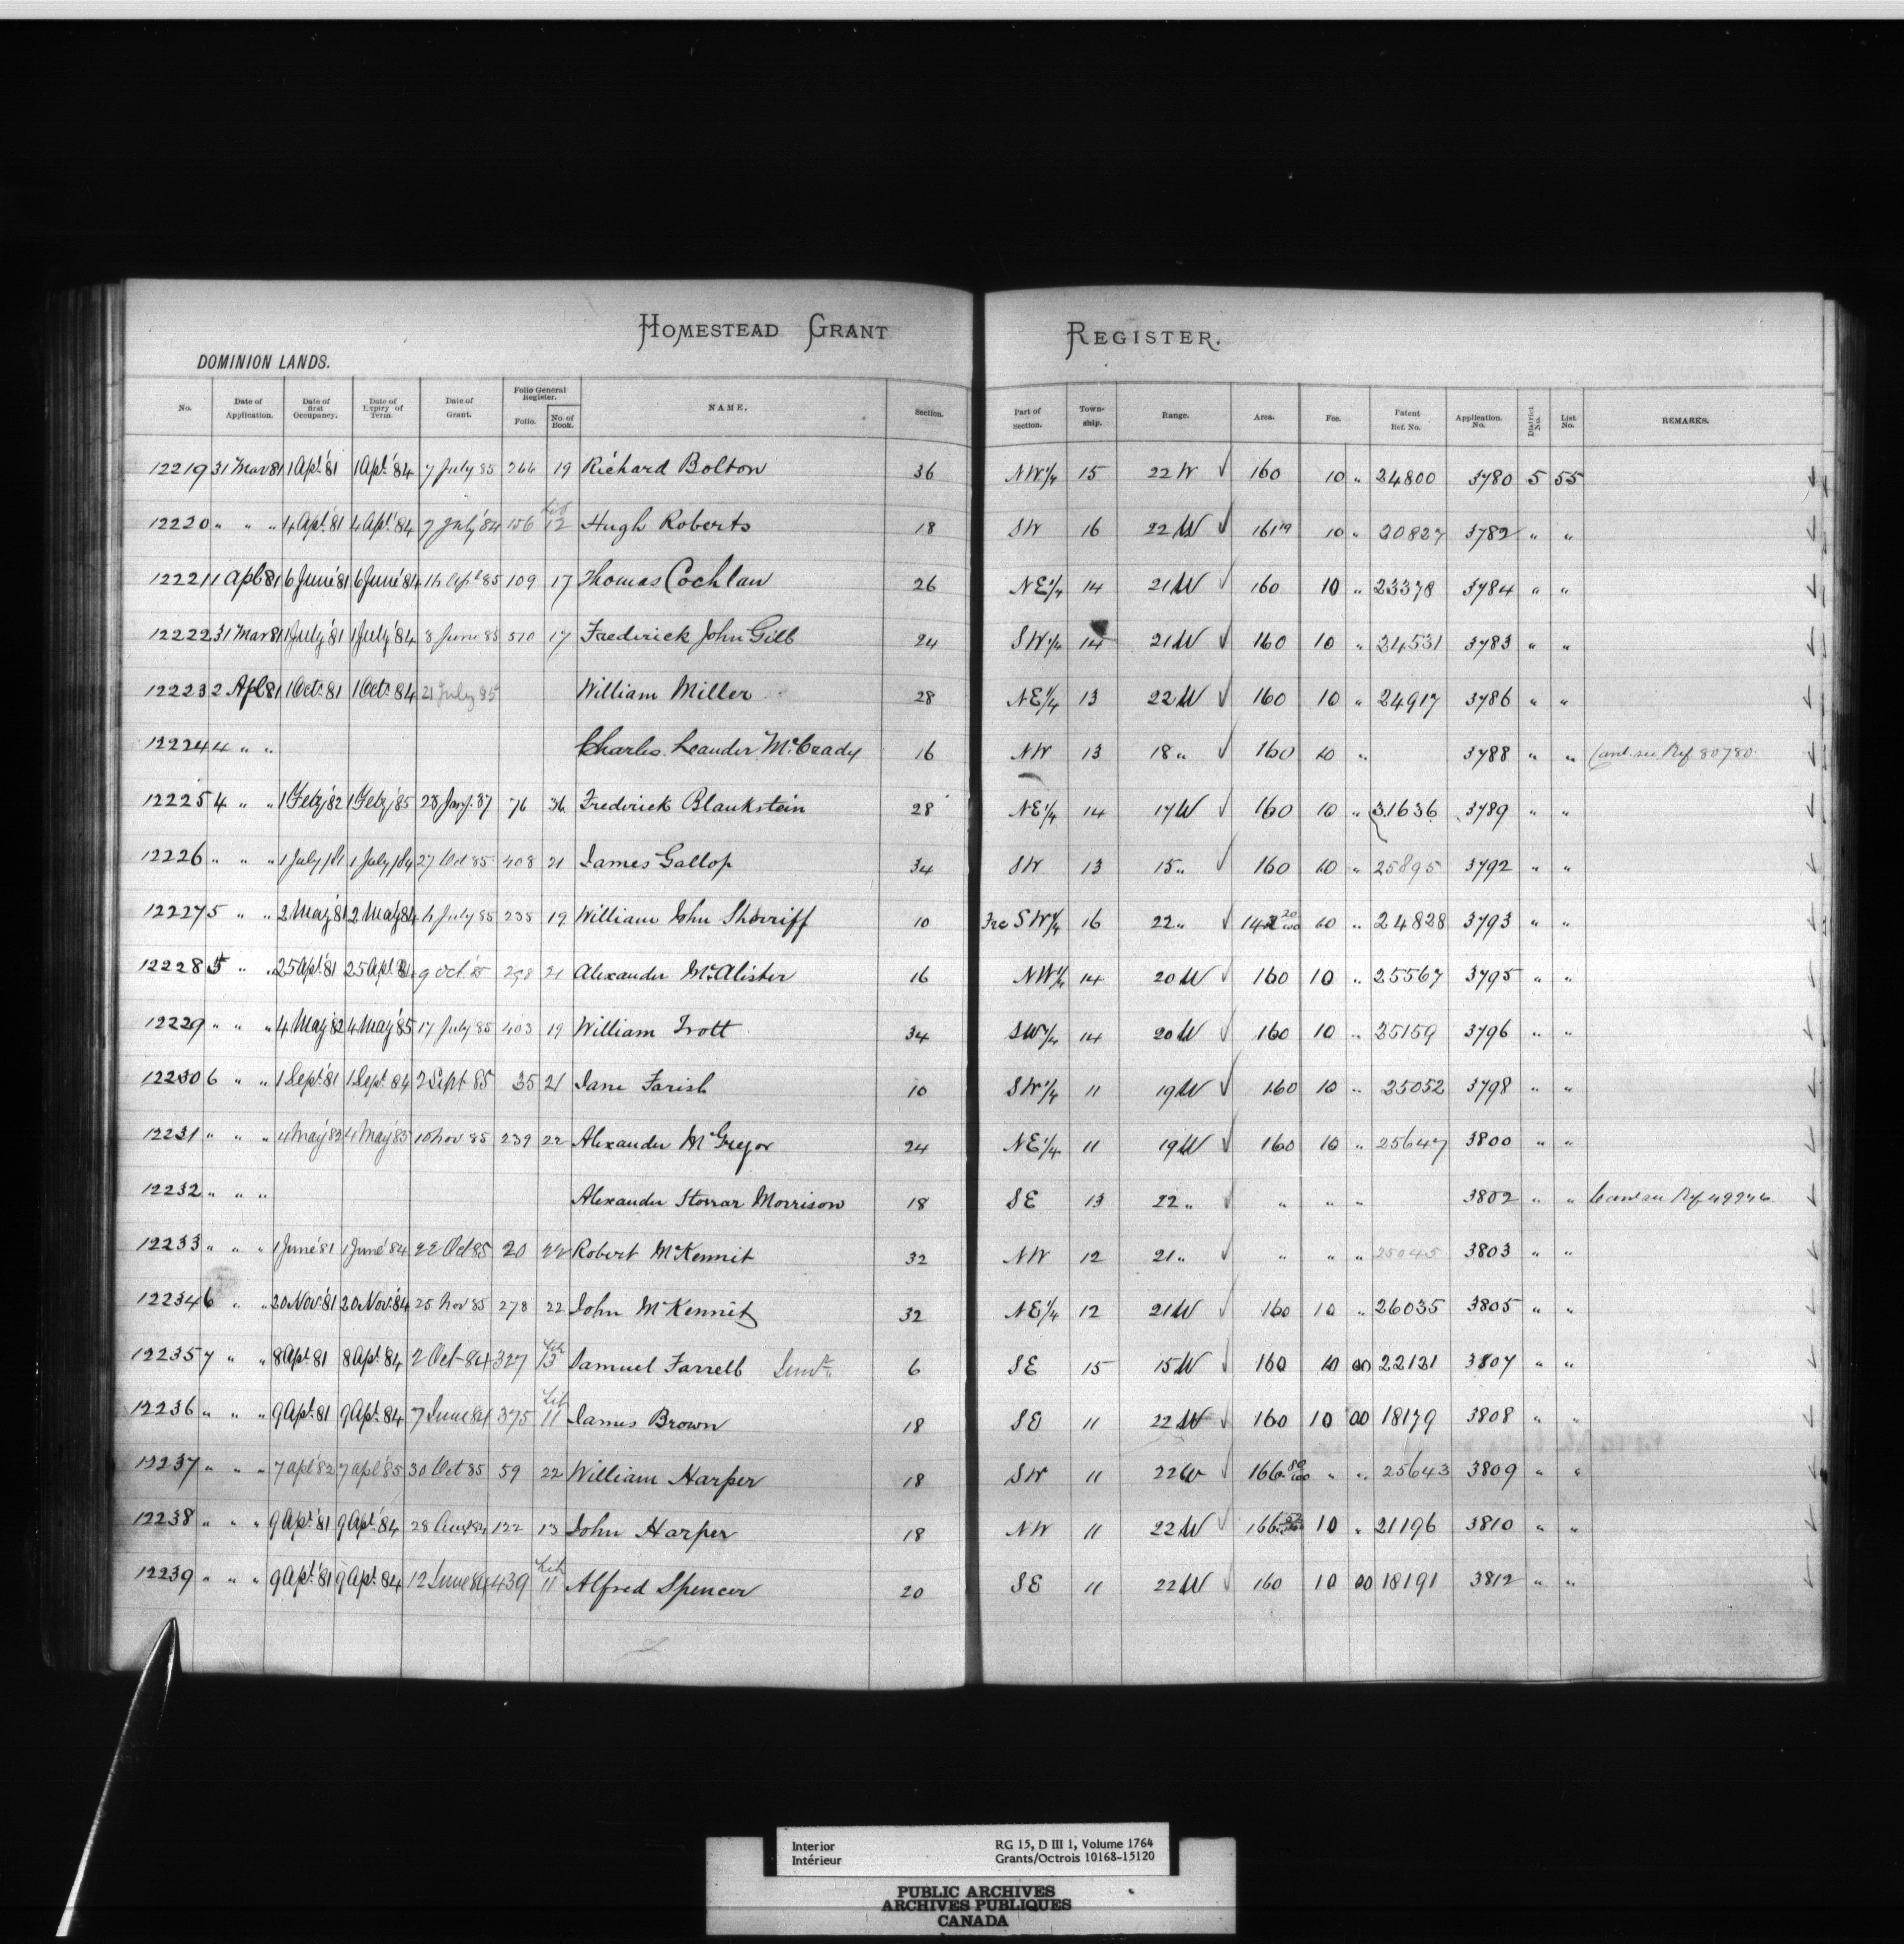 HOMESTEAD GRANT REGISTER.
DOMINION LANDS.
No. Date of Application. Date of first Occupancy. Date of Expiry of Term. Date of Grant. Folio General Register. Folio. No. of Book. NAME. Section. Part of Section. Town-ship. Range. Area. Fee. Patent Ref. No. Application. No. District No. List No. REMARKS.
12219 31 Mar 81 1 Apl. '81 1 Apl. '84 7 July 85 266 19 Richard Bolton 36 NW 1/4 15 22 W ✓ 160 10 " 24800 3780 5 55
12220 " " " 4 Apl. '81 4 Apl. '84 7 July '84 156 Lib 12 Hugh Roberts 18 SW 16 22 W ✓ 161 19 10 " 20827 3782 " "
12221 1 Apl 81 6 June '81 6 June '84 16 Apl 85 109 17 Thomas Cochlan 26 NE 1/4 14 21 W ✓ 160 10 " 23378 3784 " "
12222 31 Mar 81 1 July '81 1 July '84 8 June 85 510 17 Frederick John Gill 24 SW 1/4 14 21 W ✓ 160 10 " 24531 3783 " "
12223 2 Apl 81 1 Oct. 81 1 Oct. 84 21 July 85 William Miller 28 NE 1/4 13 22 W ✓ 160 10 " 24917 3786 " "
12224 4 " " Charles Leander McCrady 16 NW 13 18 " ✓ 160 10 " 3788 " " Canl. see Ref 80780
12225 4 " " 1 Feby '82 1 Feby '85 28 Jany. 87 76 36 Frederick Blaukstein 28 NE 1/4 14 17 W ✓ 160 10 " 31636 3789 " "
12226 " " " 1 July /81 1 July /84 27 Oct 85 408 21 James Gallop 34 SW 13 15 " ✓ 160 10 " 25895 3792 " "
12227 5 " " 2 May '81 2 May 84 6 July 85 235 19 William John Sherriff 10 Frc SW 1/4 16 22 " ✓ 142 20/100 10 " 24828 3793 " "
12228 5 " " 25 Apl. '81 25 Apl. 84 9 Oct. '85 298 21 Alexander McAlister 16 NW 1/4 14 20 W ✓ 160 10 " 25567 3795 " "
12229 " " " 4 May '82 4 May '85 17 July 85 403 19 William Trott 34 SW 1/4 14 20 W ✓ 160 10 " 25159 3796 " "
12230 6 " " 1 Sept. '81 1 Sept. 84 2 Sept 85 35 21 Jane Farish 10 SW 1/4 11 19 W ✓ 160 10 " 25052 3798 " "
12231 " " " 4 May '82 4 May '85 10 Nov 85 239 22 Alexander McGregor 24 NE 1/4 11 19 W ✓ 160 10 " 25647 3800 " "
12232 " " " Alexander Storrar Morrison 18 SE 13 22 " ✓ " " " 3802 " " Canl see Ref 49276
12233 " " " 1 June '81 1 June '84 22 Oct 85 20 22 Robert McKennit 32 NW 12 21 " ✓ " " " 25045 3803 " "
12234 6 " " 20 Nov. '81 20 Nov. '84 25 Nov 85 278 22 John McKennit 32 NE 1/4 12 21 W ✓ 160 10 " 26035 3805 " "
12235 7 " " 8 Apl. 81 8 Apl. 84 2 Oct 84 327 Lib 13 Samuel Farrell Senr. 6 SE 15 15 W ✓ 160 10 00 22131 3807 " "
12236 " " " 9 Apl. 81 9 Apl. 84 7 June 84 375 Lib 11 James Brown 18 SE 11 22 W ✓ 160 10 00 18179 3808 " "
12237 " " " 7 Apl '82 7 Apl '85 30 Oct 85 59 22 William Harper 18 SW 11 22 W ✓ 166 80/100 " " 25643 3809 " "
12238 " " " 9 Apl. '81 9 Apl. '84 28 Augt 84 122 13 John Harper 18 NW 11 22 W ✓ 166 10 " 21196 3810 " "
12239 " " " 9 Apl. '81 9 Apl. 84 12 June 84 439 Lib 11 Alfred Spencer 20 SE 11 22 W ✓ 160 10 00 18191 3812 " "
Interior RG 15, D III 1, Volume 1764
Intérieur Grants/Octrois 10168-15120
PUBLIC ARCHIVES
ARCHIVES PUBLIQUES
CANADA